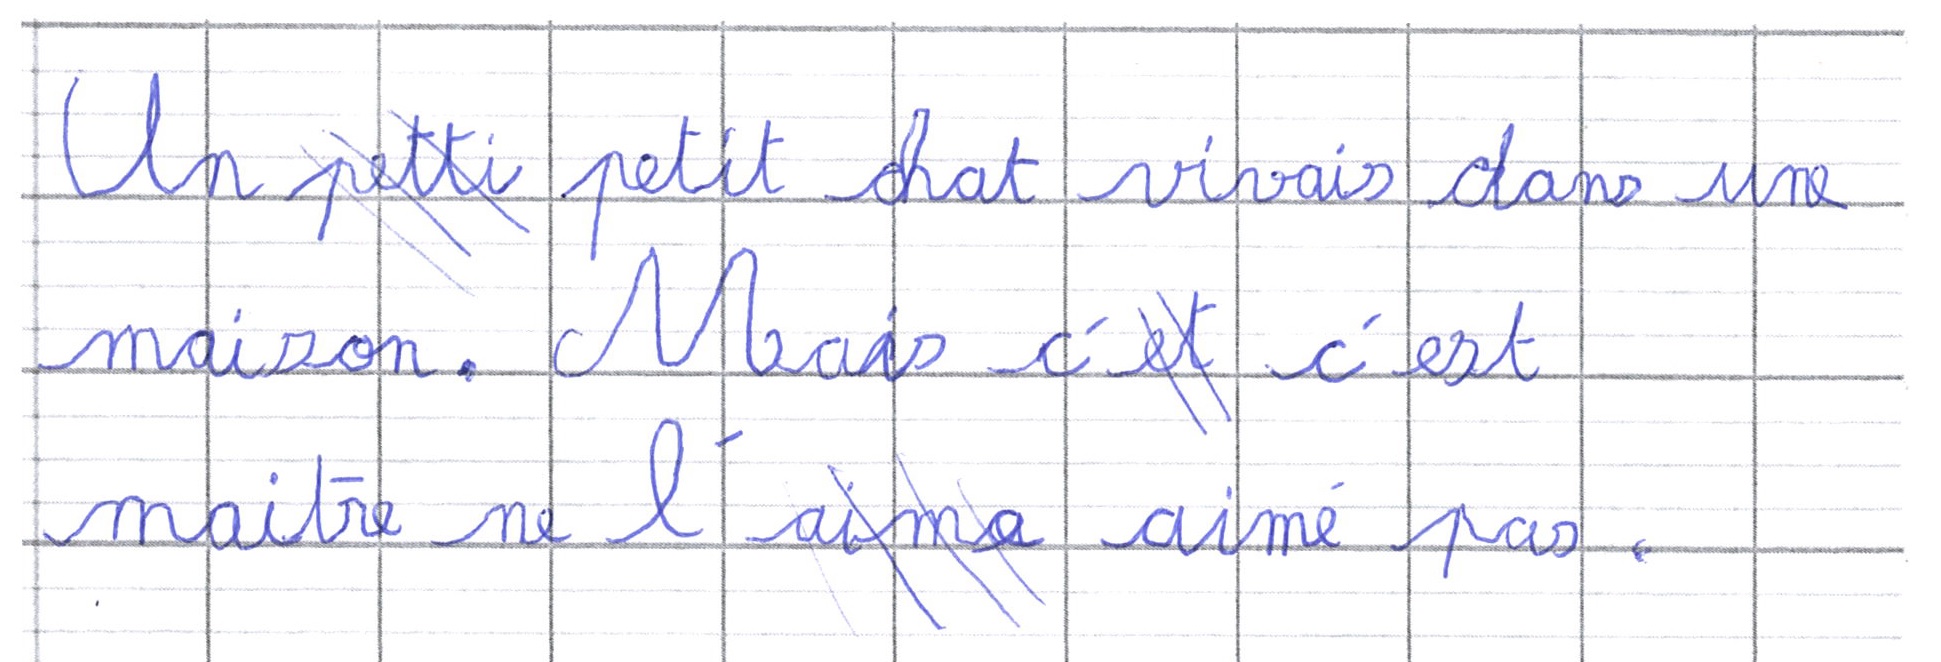 Un petti petit chat vivais dans une
maison. Mais c'et c'est
maitre ne l'aima aimé pas.